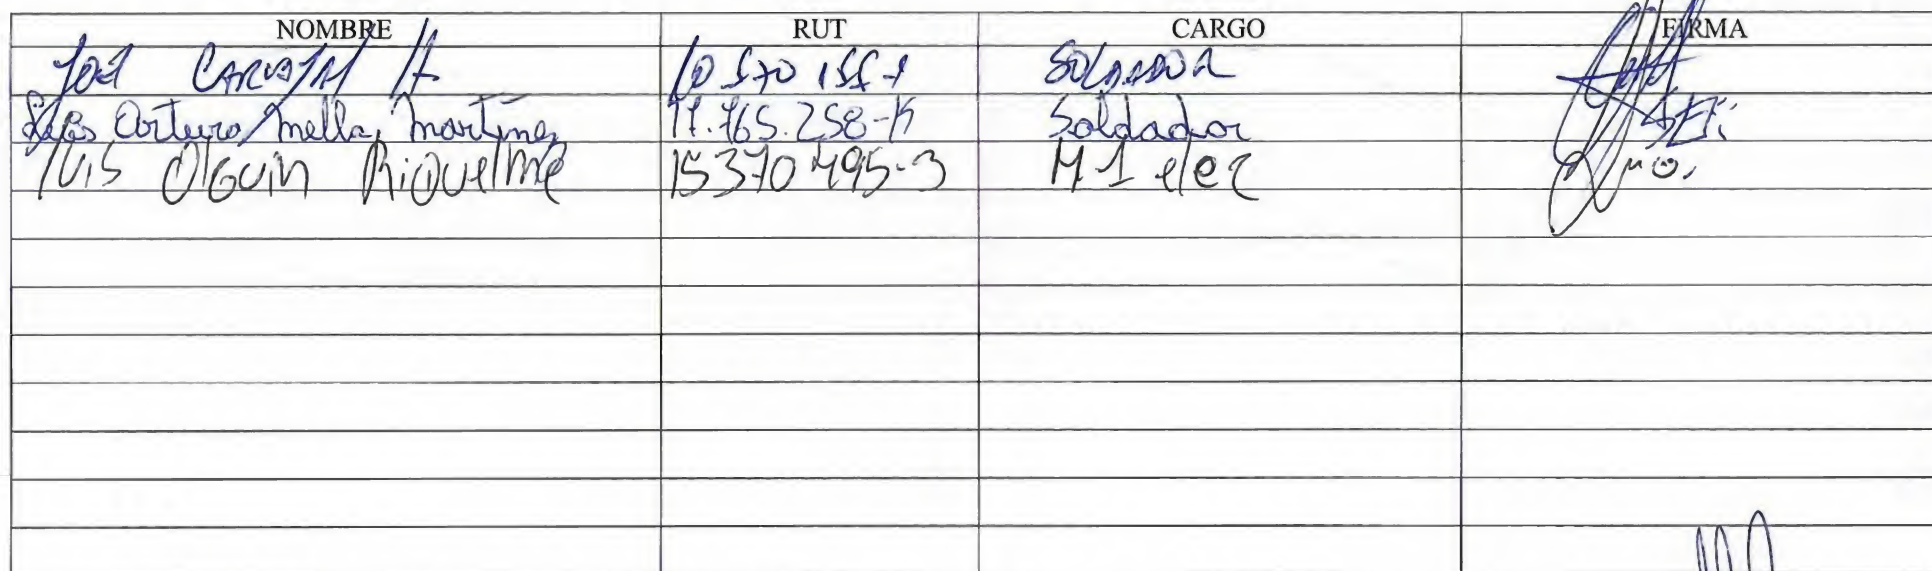 NOMBRE RUT CARGO FIRMA
José CARVAJAL SOLDADOR
Luis Arturo Mella Martinez 17.765.258-K Soldador
luis OlGuin RiQuelme 15370495-3 M-1 elec